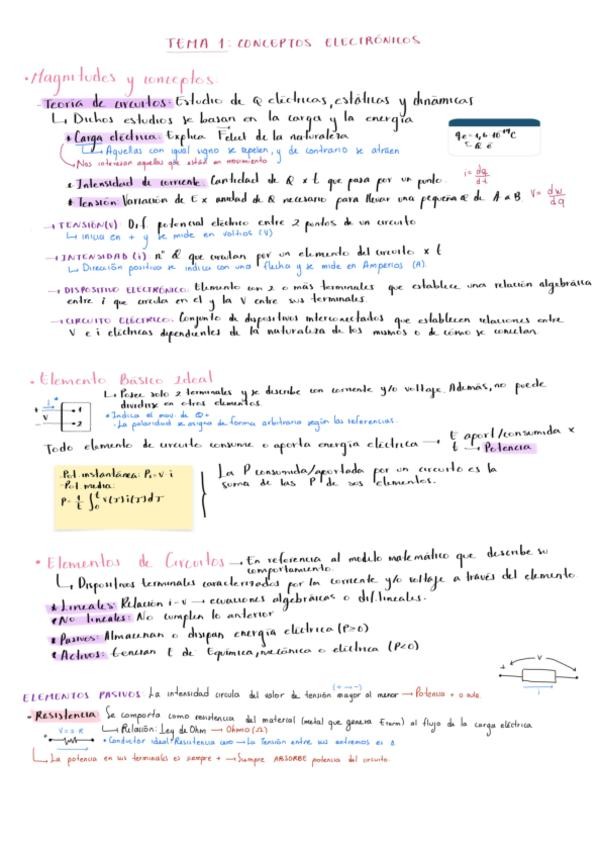 TEMA 1: CONCEPTOS ELECTRÓNICOS
• Magnitudes y conceptos.
- Teoría de circuitos: Estudio de Q eléctricas, estáticas y dinámicas
↳ Dichos estudios se basan en la carga y la energía
* Carga eléctrica: Explica Felect de la naturaleza
↳ Aquellas con igual signo se repelen, y de contrario se atraen
↳ Nos interesan aquellas que están en movimiento
qe = 1,6·10⁻¹⁹C
* Intensidad de corriente: Cantidad de Q x t que pasa por un punto.
i = dq/dt
* Tensión: Variación de E x unidad de Q necesario para llevar una pequeña Q de A a B
V = dw/dq
→ TENSIÓN (V): Dif potencial eléctrico entre 2 puntos de un circuito
↳ inicia en + y se mide en voltios (V)
→ INTENSIDAD (i) nº Q que circulan por un elemento del circuito x t
↳ Dirección positiva se indica con una flecha y se mide en Amperios (A).
→ DISPOSITIVO ELECTRÓNICO: Elemento con 2 o más terminales que establece una relación algebráica
entre i que circula en el y la V entre sus terminales.
→ CIRCUITO ELÉCTRICO: Conjunto de dispositivos interconectados que establecen relaciones entre
V e i eléctricas dependientes de la naturaleza de los mismos o de cómo se conectan.
• Elemento Básico Ideal
↳ Posee solo 2 terminales y se describe con corriente y/o voltaje. Además, no puede
dividirse en otros elementos.
+ V - 1 2
• Indica el mov. de Q+
- La polaridad se asigna de forma arbitraria según las referencias.
Todo elemento de circuito consume o aporta energía eléctrica → E aport/consumida x
t → Potencia
- Pot instantánea: P = v·i
- Pot media:
P = 1/t ∫₀ᵗ v(τ)i(τ)dτ
La P consumida/aportada por un circuito es la
suma de las P de sus elementos.
• Elementos de Circuitos → En referencia al modelo matemático que describe su
comportamiento.
↳ Dispositivos terminales caracterizados por la corriente y/o voltaje a través del elemento
* Lineales: Relación i-v → ecuaciones algebráicas o dif. lineales.
* No lineales: No cumplen lo anterior
* Pasivos: Almacenan o disipan energía eléctrica (P>0)
* Activos: Generan E de Equímica, mecánica o eléctrica (P<0)
+ V -
i
(+ → -)
ELEMENTOS PASIVOS La intensidad circula del valor de tensión mayor al menor → Potencia + o nula.
• Resistencia Se comporta como resistencia del material (metal que genera Eterm) al flujo de la carga eléctrica
V = i·R
↳ Relación: Ley de Ohm → Ohmio (Ω)
• Conductor ideal: Resistencia
→ La tensión entre sus extremos es
↳ La potencia en sus terminales es siempre + → Siempre ABSORBE potencia del circuito.